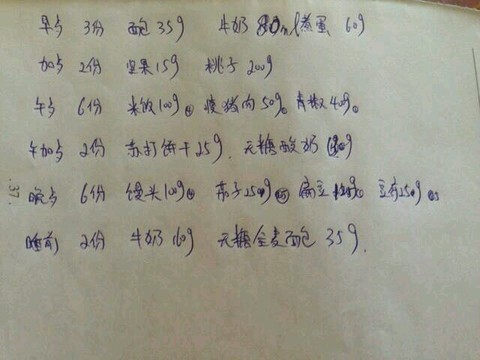 早点 3份 面包35g 牛奶80ml蒸蛋 60g
加点 2份 坚果15g 桃子200g
午点 6份 米饭100g 瘦猪肉50g 青椒400g
午加点 2份 苏打饼干25g、无糖酸奶
晚点 6份 馒头100g 茄子250g 扁豆 豆腐150g
睡前 2份 牛奶160g 无糖全麦面包 35g.
37.